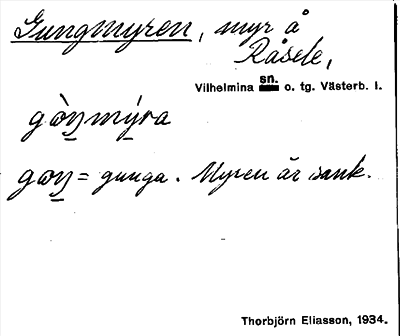 Gungmyren, myr å
Råsele,
Vilhelmina sn. o. tg. Västerb. l.
gòŋmýra
gɷŋ = gunga. Myren är sank.
Thorbjörn Eliasson, 1934.